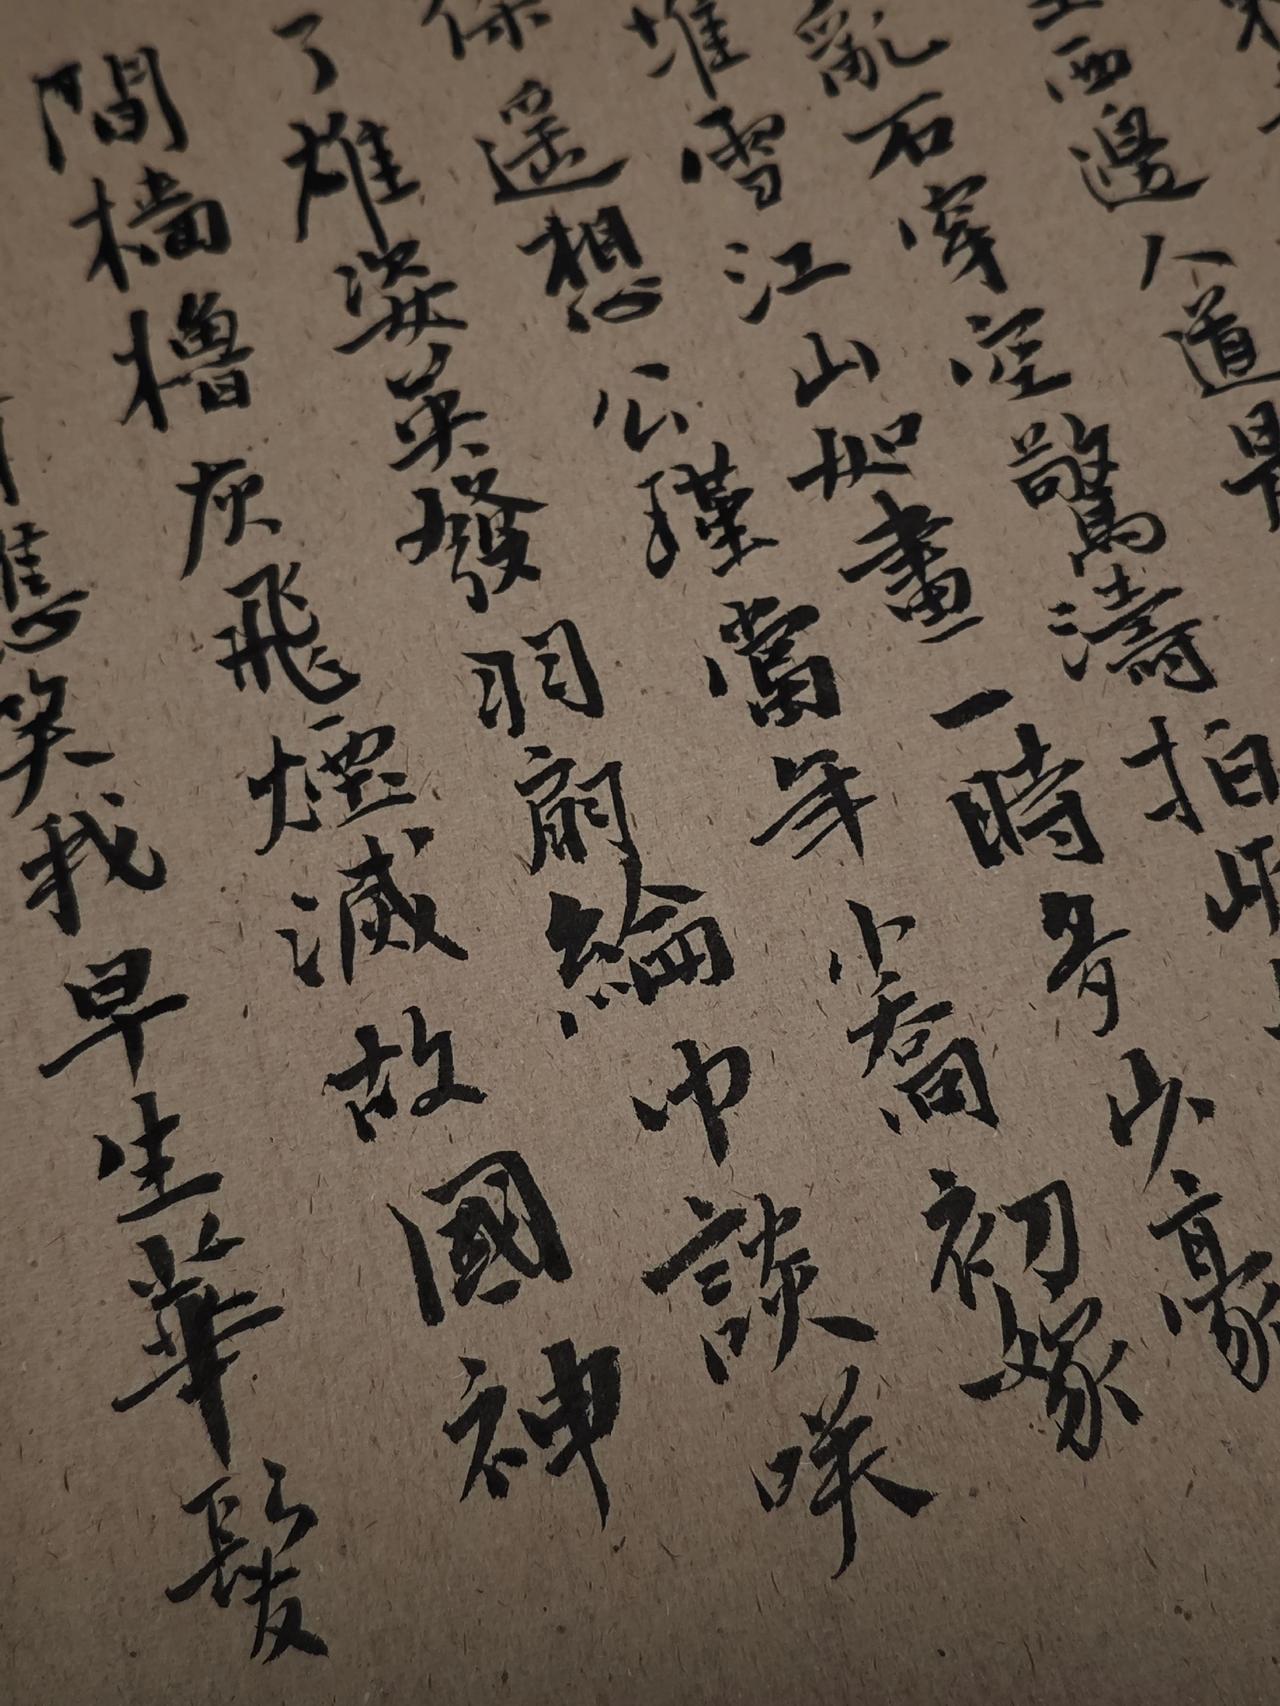 西邊人道是
亂石穿空驚濤拍岸
堆雪江山如畫一時多少豪
遙想公瑾當年小喬初嫁
了雄姿英發羽扇綸巾談咲
間檣櫓灰飛煙滅故國神
應笑我早生華髮